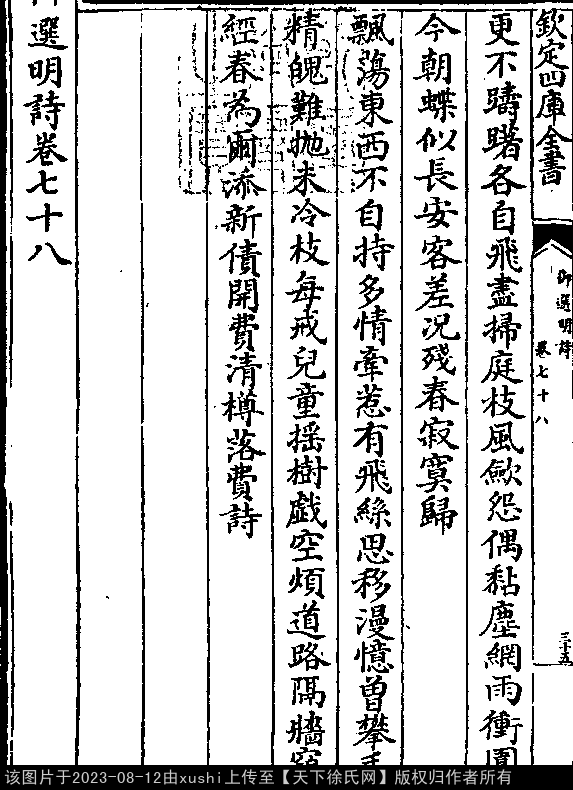 欽定四庫全書
御選明詩
卷七十八
三十五
更不躊躇各自飛盡掃庭枝風歘怨偶黏塵網雨衝園
今朝蝶似長安客差況殘春寂寞歸
飄蕩東西不自持多情牽惹有飛絲思移漫憶曾攀手
精魄難拋未冷枝每戒兒童揺樹戯空煩道路隔牆窺
經春為爾添新債開費清樽落費詩
御選明詩卷七十八
该图片于2023-08-12由xushi上传至【天下徐氏网】版权归作者所有